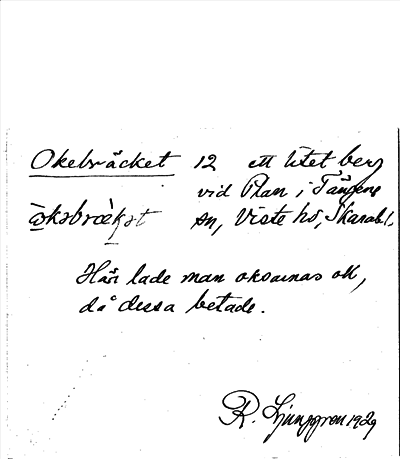 Okebräcket 12 ett litet berg
vid Plan i Tängene
òksbrækət sn, Viste hd, Skarab.l.
Här lade man oksarnas ok,
då dessa betade.
R. Ljunggren 1929